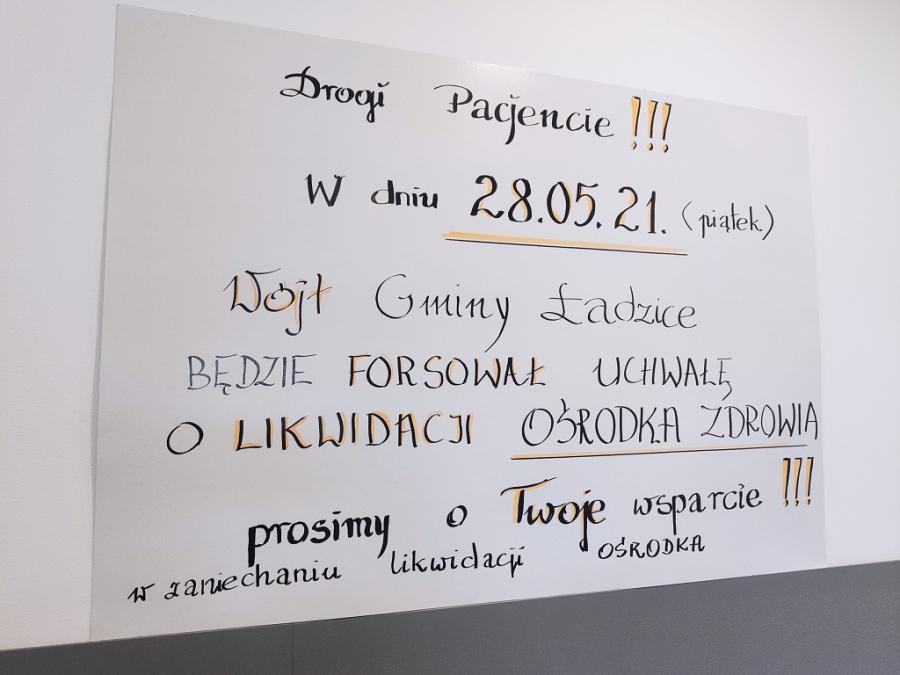 Drogi Pacjencie !!!
W dniu 28.05.21. (piątek)
Wójt Gminy Ładzice
BĘDZIE FORSOWAŁ UCHWAŁĘ
O LIKWIDACJI OŚRODKA ZDROWIA
prosimy o Twoje wsparcie !!!
w zaniechaniu likwidacji OŚRODKA